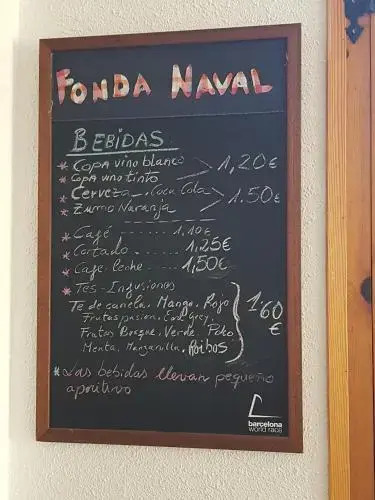 FONDA NAVAL
BEBIDAS
* COPA vino blanco
* COPA vino tinto 1,20€
* Cerveza - Coca Cola
* Zumo Naranja 1.50€
* Café ...... 1,10€
* Cortado ..... 1,25€
* Cafe-leche .... 1,50€
* Tes - Infusiones
Te de canela, Mango, Rojo
Frutas pasion, Earl Grey,
Frutas Bosque, Verde, 1,60
Menta, Manzanilla, Roibos €
* Las bebidas llevan pequeño
aperitivo
barcelona
world race